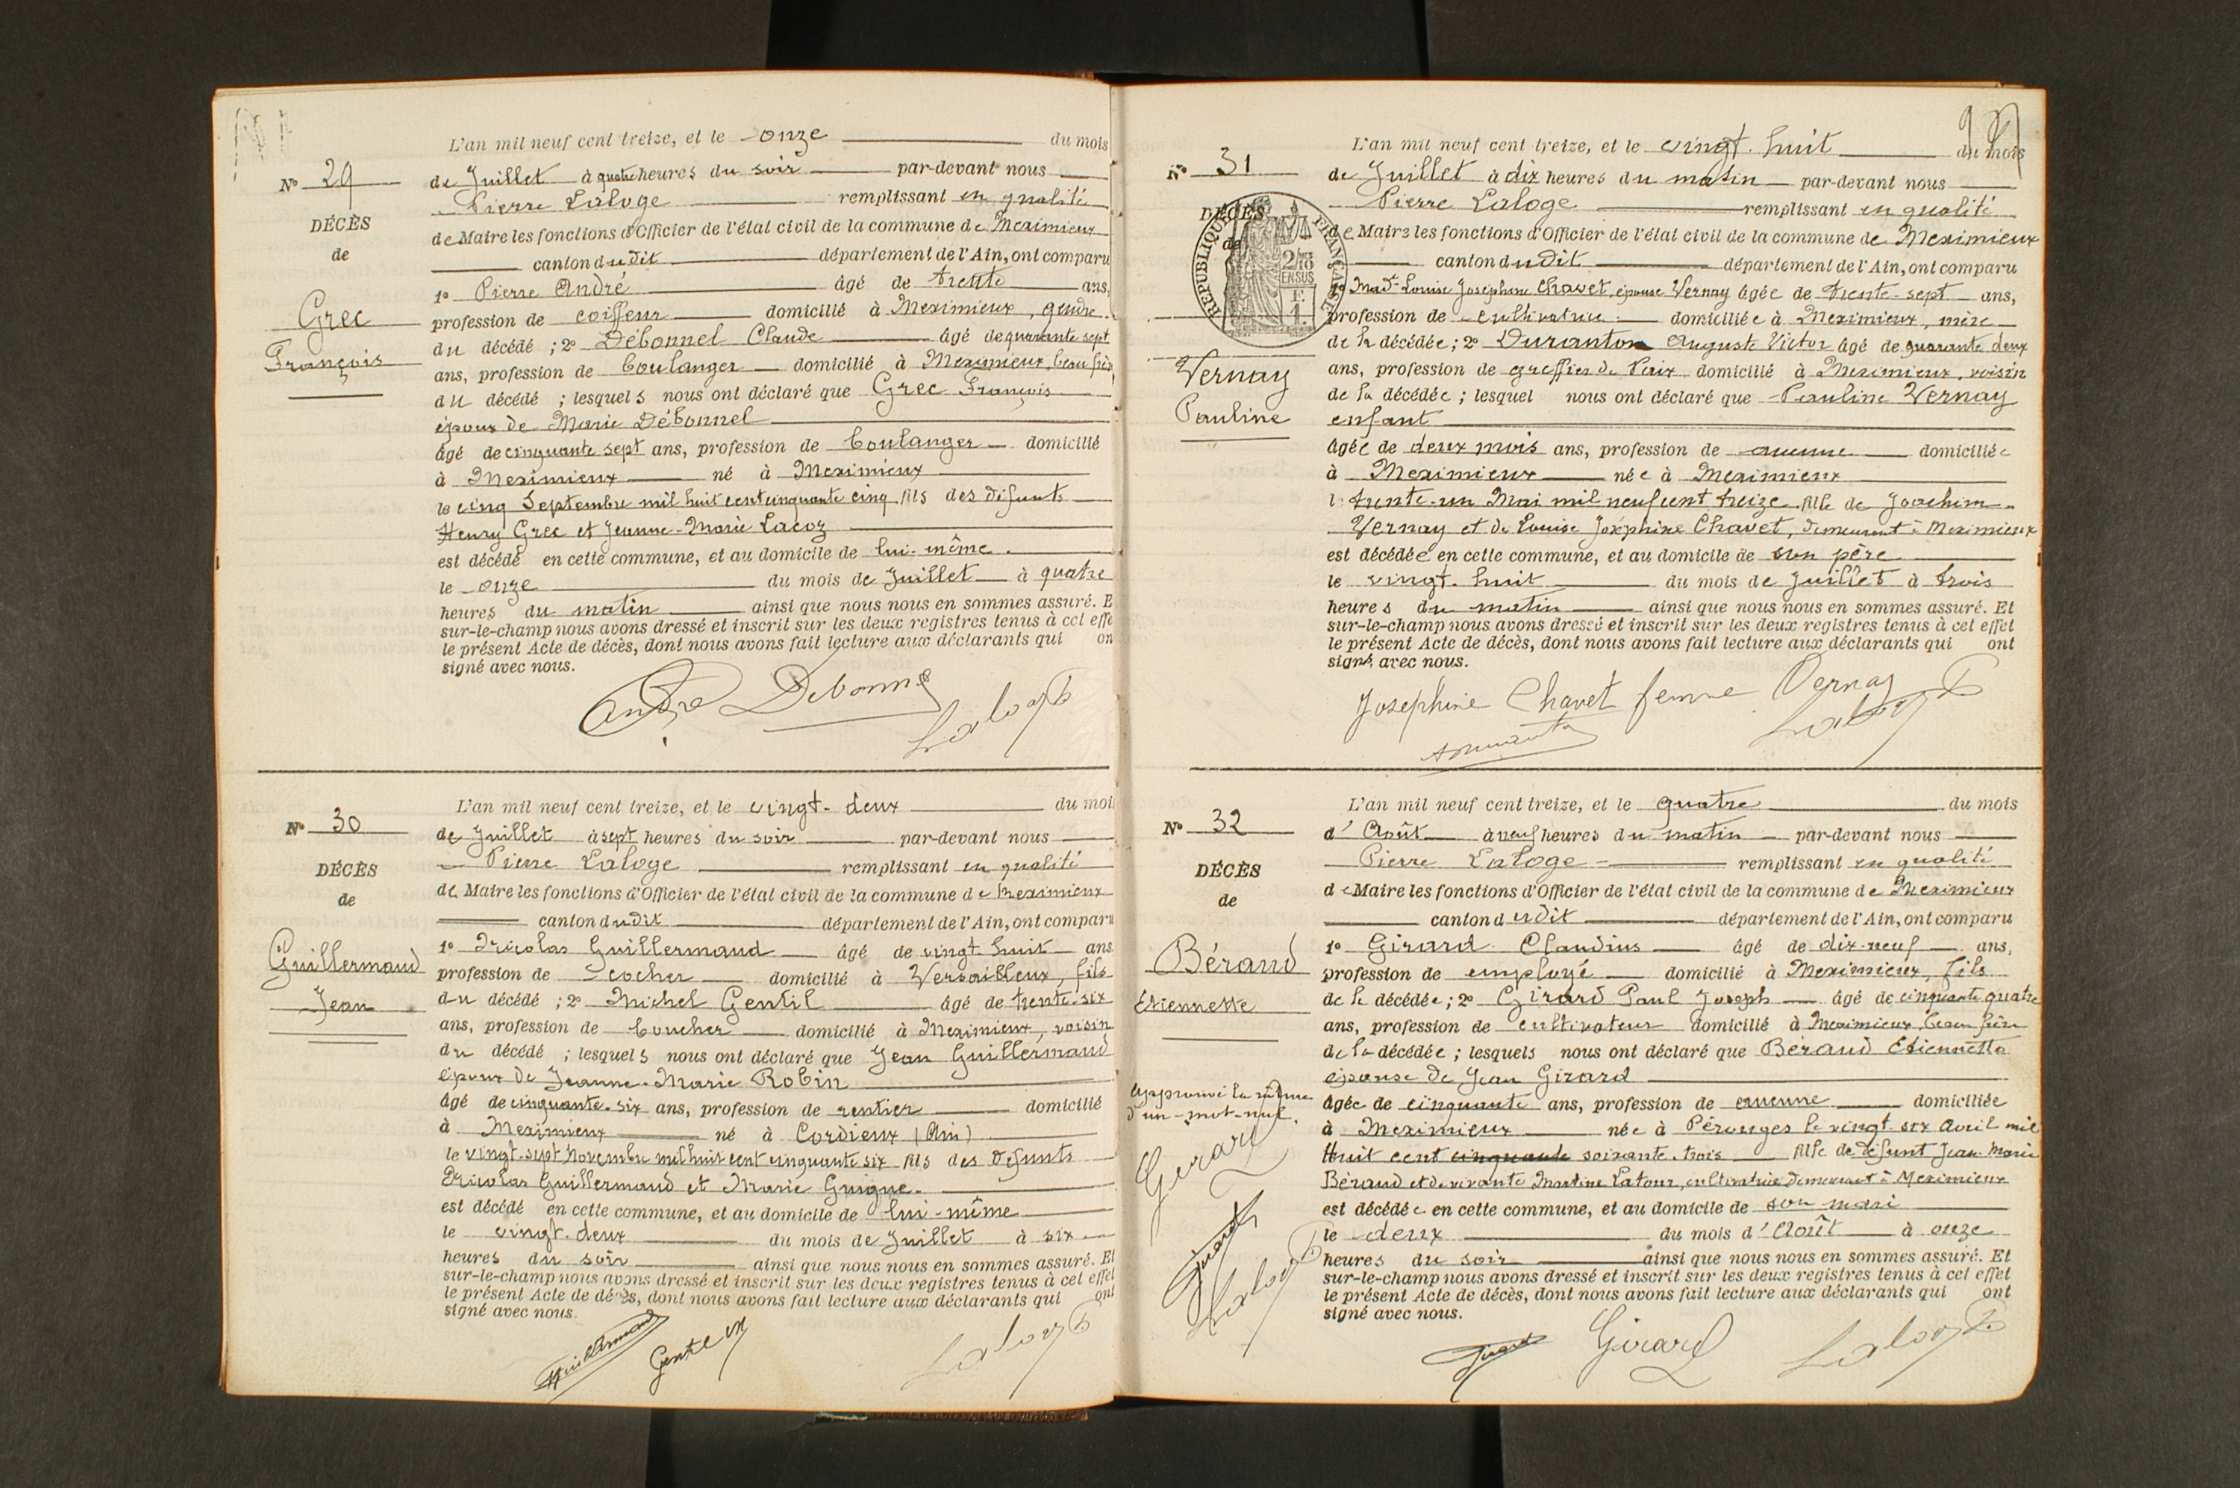 L'an mil neuf cent treize, et le onze du mois
No 29
de Juillet à quatre heures du soir par-devant nous
Pierre Laloge remplissant en qualité
DÉCÈS
de Maire les fonctions d'Officier de l'état civil de la commune de Meximieux
de
canton dudit département de l'Ain, ont comparu
1o Pierre André âgé de trente ans,
Grec
profession de coiffeur domicilié à Meximieux, gendre
du décédé ; 2o Débonnel Claude âgé de quarante sept
François
ans, profession de boulanger domicilié à Meximieux, beau frère
du décédé ; lesquels nous ont déclaré que Grec François
époux de Marie Débonnel
âgé de cinquante sept ans, profession de boulanger domicilié
à Meximieux né à Meximieux
le cinq Septembre mil huit cent cinquante cinq fils des défunts
Henry Grec et Jeanne-Marie Lacoz
est décédé en cette commune, et au domicile de lui-même
le onze du mois de Juillet à quatre
heures du matin ainsi que nous nous en sommes assuré. E
sur-le-champ nous avons dressé et inscrit sur les deux registres tenus à cet effe
le présent Acte de décès, dont nous avons fait lecture aux déclarants qui on
signé avec nous.
André Debonnel
Laloge
L'an mil neuf cent treize, et le vingt-deux du moi
No 30
de Juillet à sept heures du soir par-devant nous
Pierre Laloge remplissant en qualité
DÉCÈS
de Maire les fonctions d'Officier de l'état civil de la commune de Meximieux
de
canton dudit département de l'Ain, ont comparu
1o Nicolas Guillermaud âgé de vingt huit ans
Guillermaud
profession de cocher domicilié à Versailleux, fils
Jean
du décédé ; 2o Michel Gentil âgé de trente-six
ans, profession de boucher domicilié à Meximieux, voisin
du décédé ; lesquels nous ont déclaré que Jean Guillermaud
époux de Jeanne-Marie Robin
âgé de cinquante-six ans, profession de rentier domicilié
à Meximieux né à Cordieux (Ain)
le vingt-sept Novembre mil huit cent cinquante six fils des défunts
Nicolas Guillermaud et Marie Guigue.
est décédé en cette commune, et au domicile de lui-même
le vingt-deux du mois de Juillet à six
heures du soir ainsi que nous nous en sommes assuré. Et
sur-le-champ nous avons dressé et inscrit sur les deux registres tenus à cet effet
le présent Acte de décès, dont nous avons fait lecture aux déclarants qui ont
signé avec nous.
Guillermaud Gentil Laloge
L'an mil neuf cent treize, et le vingt-huit du mois
No 31
de Juillet à dix heures du matin par-devant nous
Pierre Laloge remplissant en qualité
DÉCÈS
de Maire les fonctions d'Officier de l'état civil de la commune de Meximieux
de
RÉPUBLIQUE FRANÇAISE
canton dudit département de l'Ain, ont comparu
2/10 EN SUS
1o Made Louise Josephine Chavet, épouse Vernay âgée de trente-sept ans,
profession de cultivatrice domiciliée à Meximieux, mère
de la décédée ; 2o Duranton Auguste Victor âgé de quarante deux
Vernay
ans, profession de greffier de Paix domicilié à Meximieux, voisin
Pauline
de la décédée ; lesquel nous ont déclaré que Pauline Vernay
enfant
âgée de deux mois ans, profession de aucune domiciliée
à Meximieux née à Meximieux
le trente-un Mai mil neuf cent treize fille de Joachim
Vernay et de Louise Joséphine Chavet, demeurant à Meximieux
est décédée en cette commune, et au domicile de son père
le vingt-huit du mois de Juillet à trois
heures du matin ainsi que nous nous en sommes assuré. Et
sur-le-champ nous avons dressé et inscrit sur les deux registres tenus à cet effet
le présent Acte de décès, dont nous avons fait lecture aux déclarants qui ont
signé avec nous.
Josephine Chavet femme Vernay
Duranton Laloge
L'an mil neuf cent treize, et le quatre du mois
No 32
d'Août à neuf heures du matin par-devant nous
Pierre Laloge remplissant en qualité
DÉCÈS
de Maire les fonctions d'Officier de l'état civil de la commune de Meximieux
de
canton dudit département de l'Ain, ont comparu
1o Girard Claudius âgé de dix-neuf ans,
Béraud
profession de employé domicilié à Meximieux, fils
Etiennette
de la décédée ; 2o Girard Paul Joseph âgé de cinquante quatre
ans, profession de cultivateur domicilié à Meximieux, beau frère
de la décédée ; lesquels nous ont déclaré que Béraud Etiennette
épouse de Jean Girard
Approuvé la rature
d'un mot nul.
âgée de cinquante ans, profession de aucune domiciliée
à Meximieux née à Pérouges le vingt-six avril mil
Huit cent cinquante soixante-trois fille de défunt Jean-Marie
Béraud et de vivante Martine Latour, cultivatrice demeurant à Meximieux
est décédée en cette commune, et au domicile de son mari
le deux du mois d'Août à onze
heures du soir ainsi que nous nous en sommes assuré. Et
sur-le-champ nous avons dressé et inscrit sur les deux registres tenus à cet effet
le présent Acte de décès, dont nous avons fait lecture aux déclarants qui ont
signé avec nous.
Girard
Girard
Laloge
Girard Girard Laloge